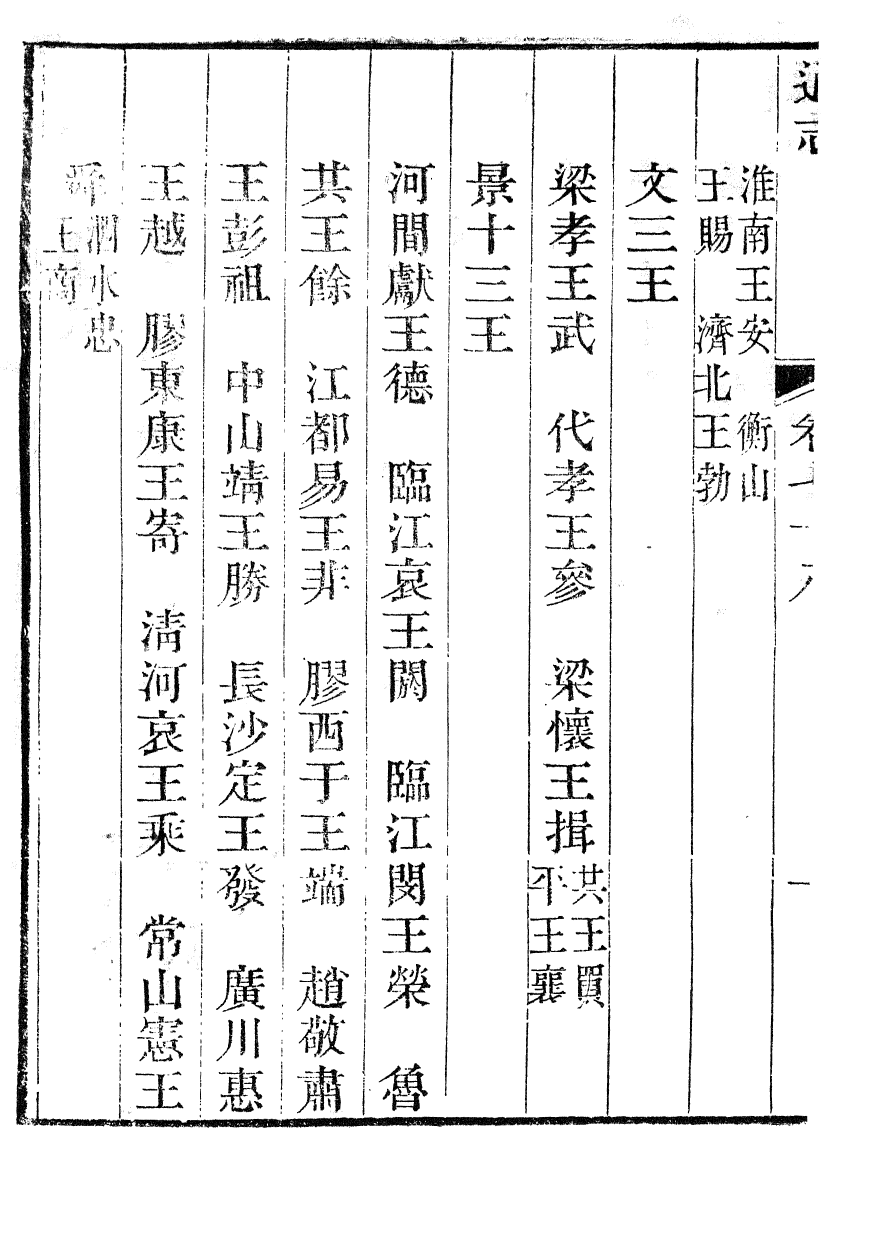 通志
卷七十八
一
淮南王安　衡山
王賜　濟北王勃
文三王
梁孝王武　代孝王參　梁懷王揖
共王買
平王襄
景十三王
河間獻王德　臨江哀王閼　臨江閔王榮　魯
共王餘　江都易王非　膠西于王端　趙敬肅
王彭祖　中山靖王勝　長沙定王發　廣川惠
王越　膠東康王寄　淸河哀王乘　常山憲王
舜
泗水忠
王商